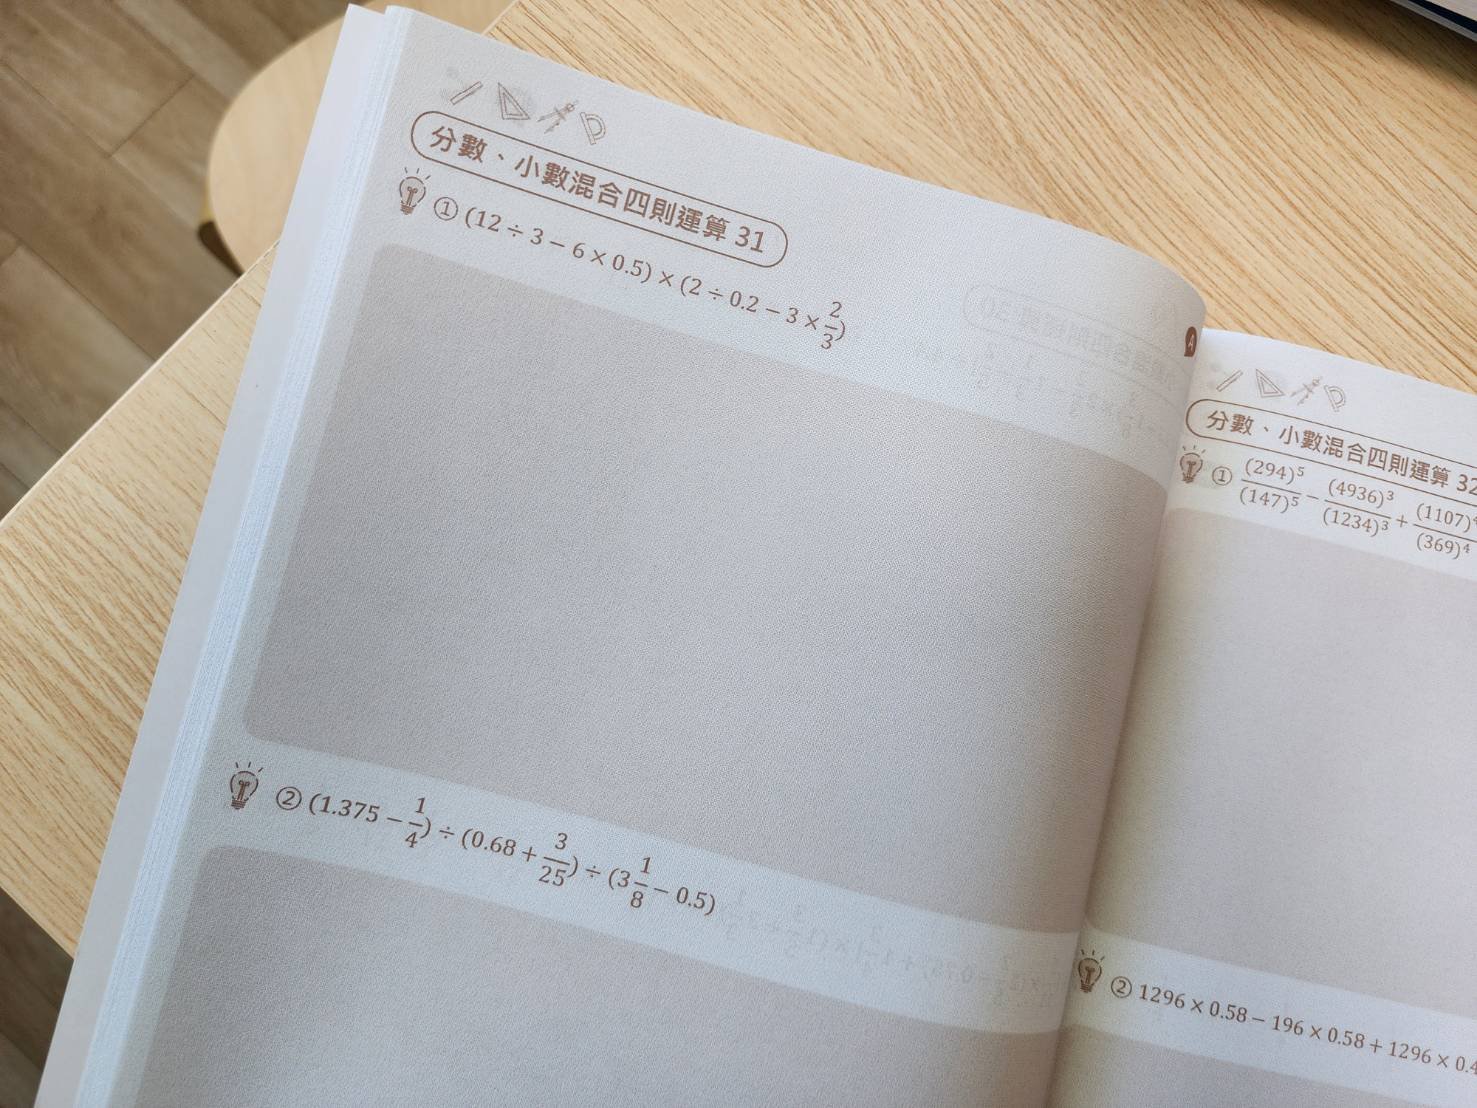 分數、小數混合四則運算 31
① (12 ÷ 3 − 6 × 0.5) × (2 ÷ 0.2 − 3 × 2/3)
② (1.375 − 1/4) ÷ (0.68 + 3/25) ÷ (3 1/8 − 0.5)
A
分數、小數混合四則運算 32
① (294)⁵/(147)⁵ − (4936)³/(1234)³ + (1107)⁴/(369)⁴
② 1296 × 0.58 − 196 × 0.58 + 1296 × 0.4